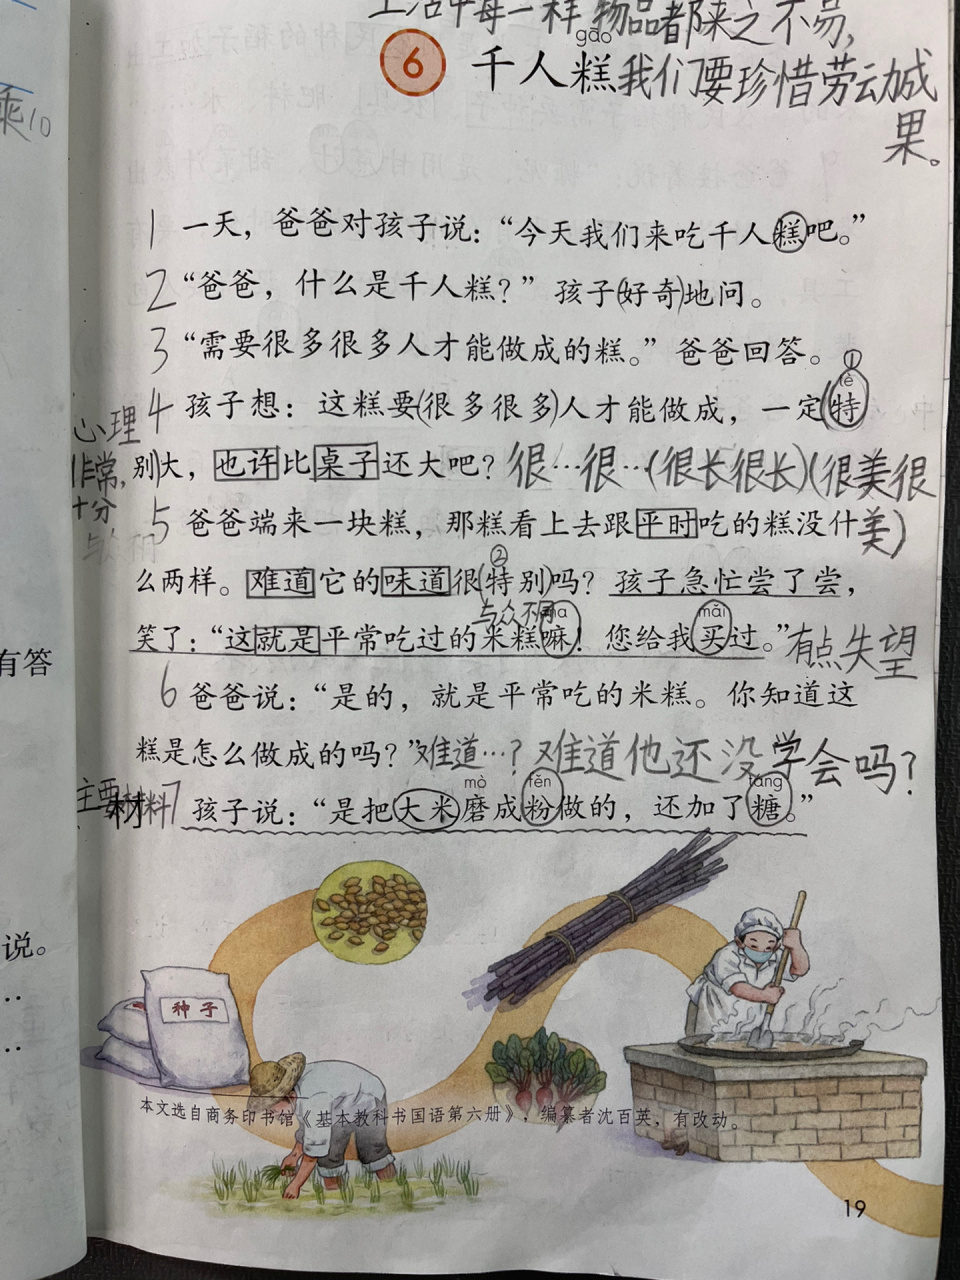 生活中每一样物品都来之不易,
gāo
6 千人糕 我们要珍惜劳动成
果。
乘10
1 一天，爸爸对孩子说：“今天我们来吃千人糕吧。”
2 “爸爸，什么是千人糕？”孩子(好奇)地问。
3 “需要很多很多人才能做成的糕。”爸爸回答。
①
tè
心理 4 孩子想：这糕要(很多很多)人才能做成，一定(特
(非常, 别)大，也许比桌子还大吧？很…很…(很长很长)(很美很
十分
与众不同 5 爸爸端来一块糕，那糕看上去跟平时吃的糕没什 美)
②
么两样。难道它的味道很(特别)吗？孩子急忙尝了尝，
与众不同 ma mǎi
笑了：“这就是平常吃过的米糕嘛！您给我买过。” 有点失望
有答
6 爸爸说：“是的，就是平常吃的米糕。你知道这
糕是怎么做成的吗？” 难道…? 难道他还没学会吗?
mò fěn táng
主要材料 7 孩子说：“是把大米磨成粉做的，还加了糖。”
说。
种子
本文选自商务印书馆《基本教科书国语第六册》，编纂者沈百英，有改动。
19